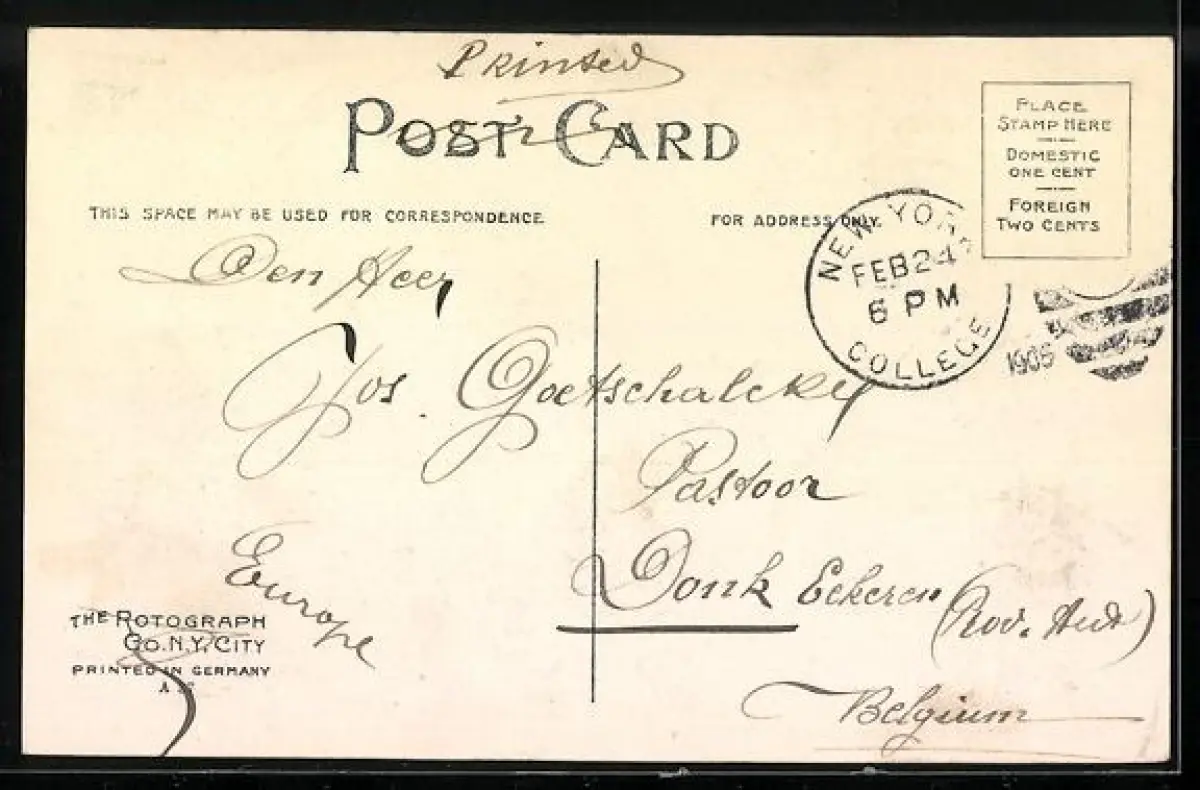 Printed
POST CARD
PLACE
STAMP HERE
DOMESTIC
ONE CENT
FOREIGN
TWO CENTS
THIS SPACE MAY BE USED FOR CORRESPONDENCE
FOR ADDRESS ONLY.
NEW YORK
FEB 24
6 PM
COLLEGE
1906
Den Heer
Jos. Goetschalckx
Pastoor
Donk Eekeren
(Prov. Antw)
Belgium
Europe
THE ROTOGRAPH
CO. N.Y. CITY
PRINTED IN GERMANY